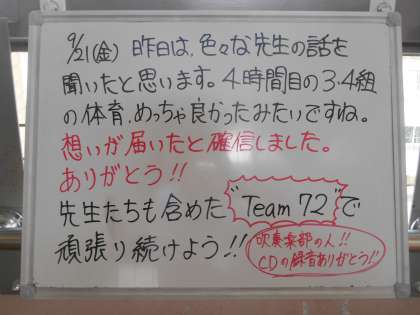 9/21(金) 昨日は、色々な先生の話を
聞いたと思います。4時間目の3.4組
の体育、めっちゃ良かったみたいですね。
想いが届いたと確信しました。
ありがとう!!
先生たちも含めた "Team 72" で
頑張り続けよう!!
吹奏楽部の人!!
CDの録音ありがとう!!